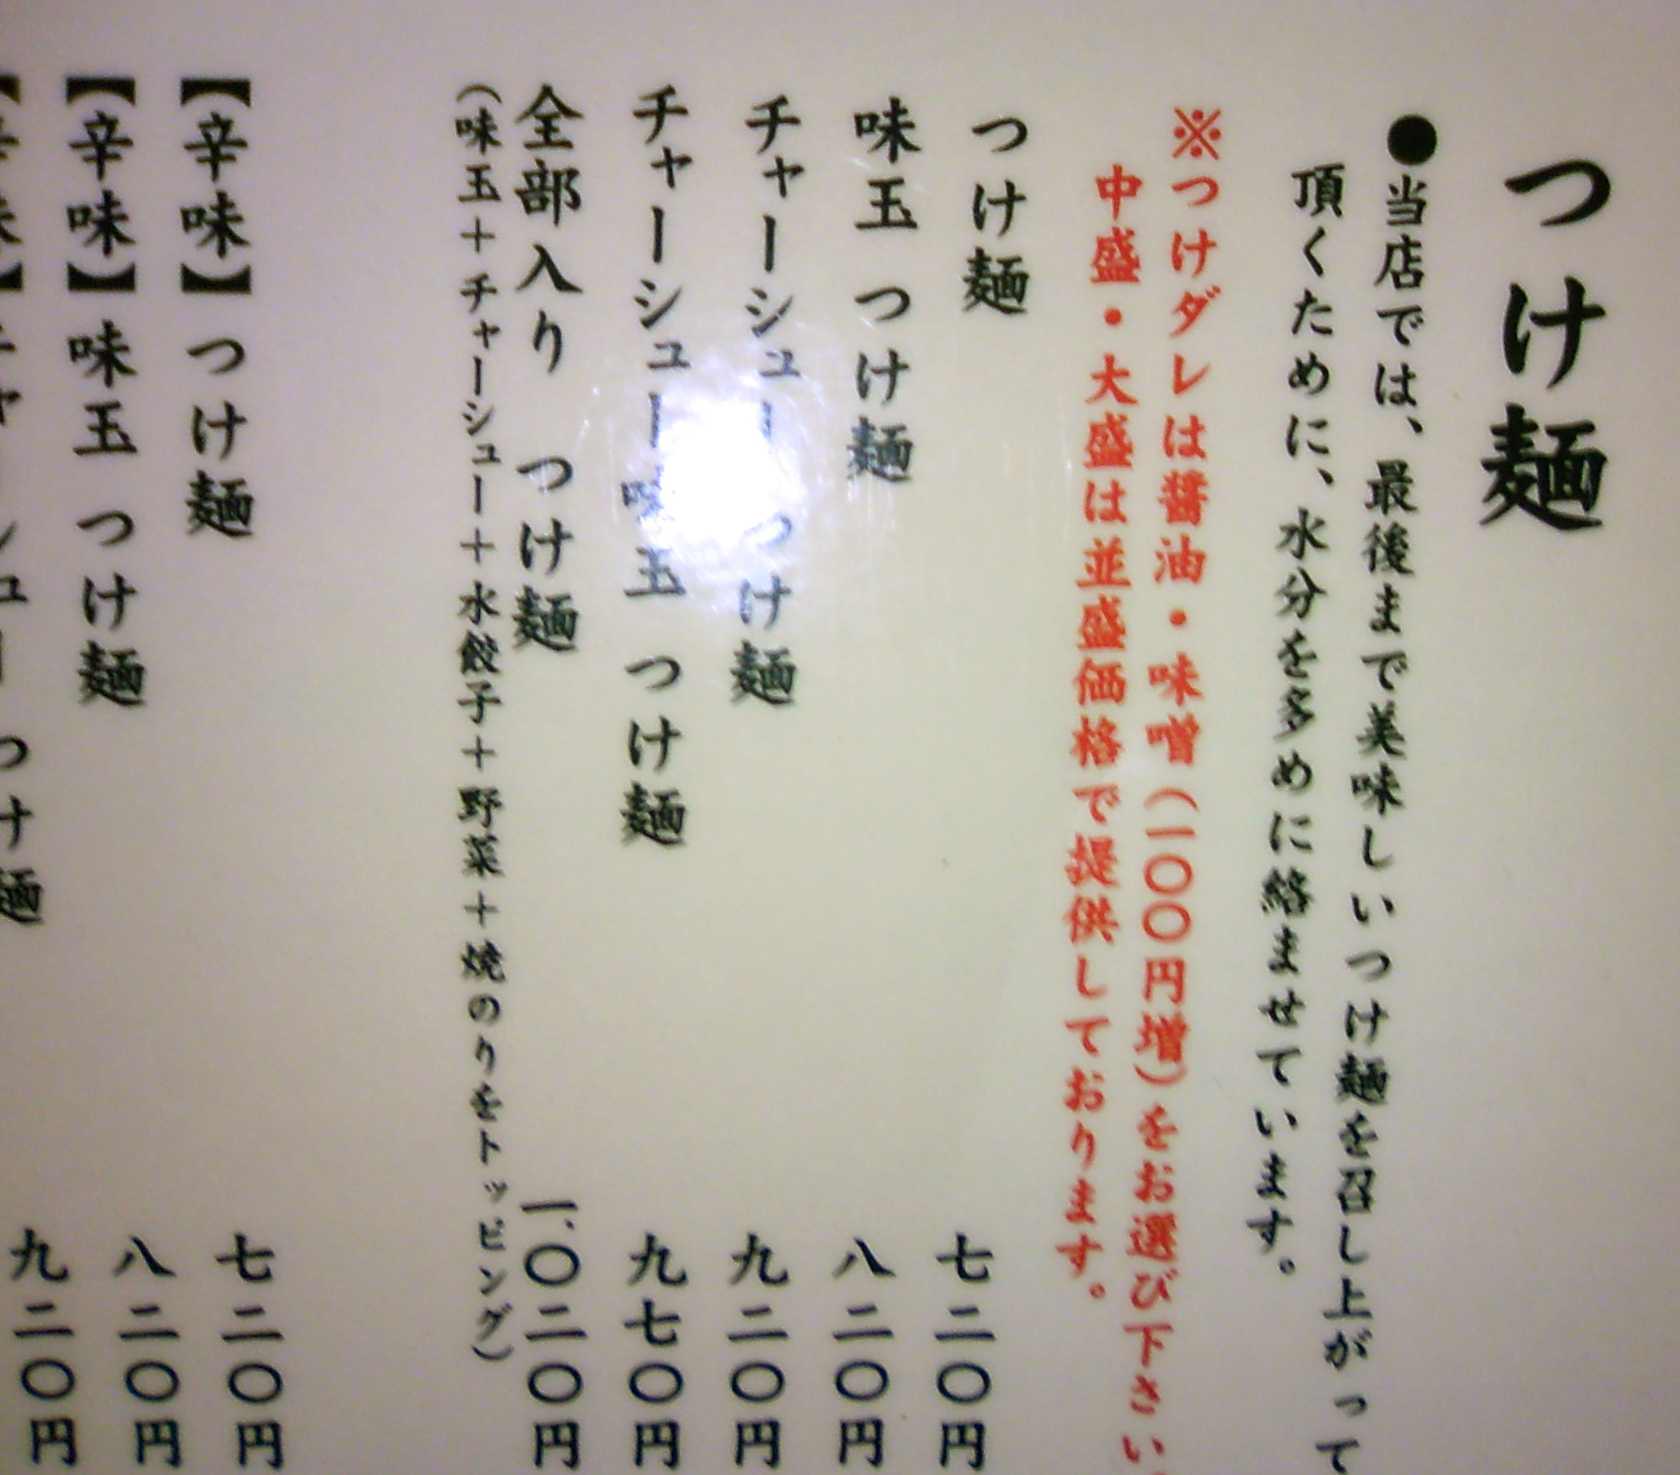 つけ麺
●当店では、最後まで美味しいつけ麺を召し上がって
頂くために、水分を多めに絡ませています。
※つけダレは醤油・味噌（一〇〇円増）をお選び下さい
中盛・大盛は並盛価格で提供しております。
つけ麺 七二〇円
味玉 つけ麺 八二〇円
チャーシュー つけ麺 九二〇円
チャーシュー味玉 つけ麺 九七〇円
全部入り つけ麺 一、〇二〇円
（味玉＋チャーシュー＋水餃子＋野菜＋焼のりをトッピング）
【辛味】つけ麺 七二〇円
【辛味】味玉 つけ麺 八二〇円
【辛味】チャーシュー つけ麺 九二〇円